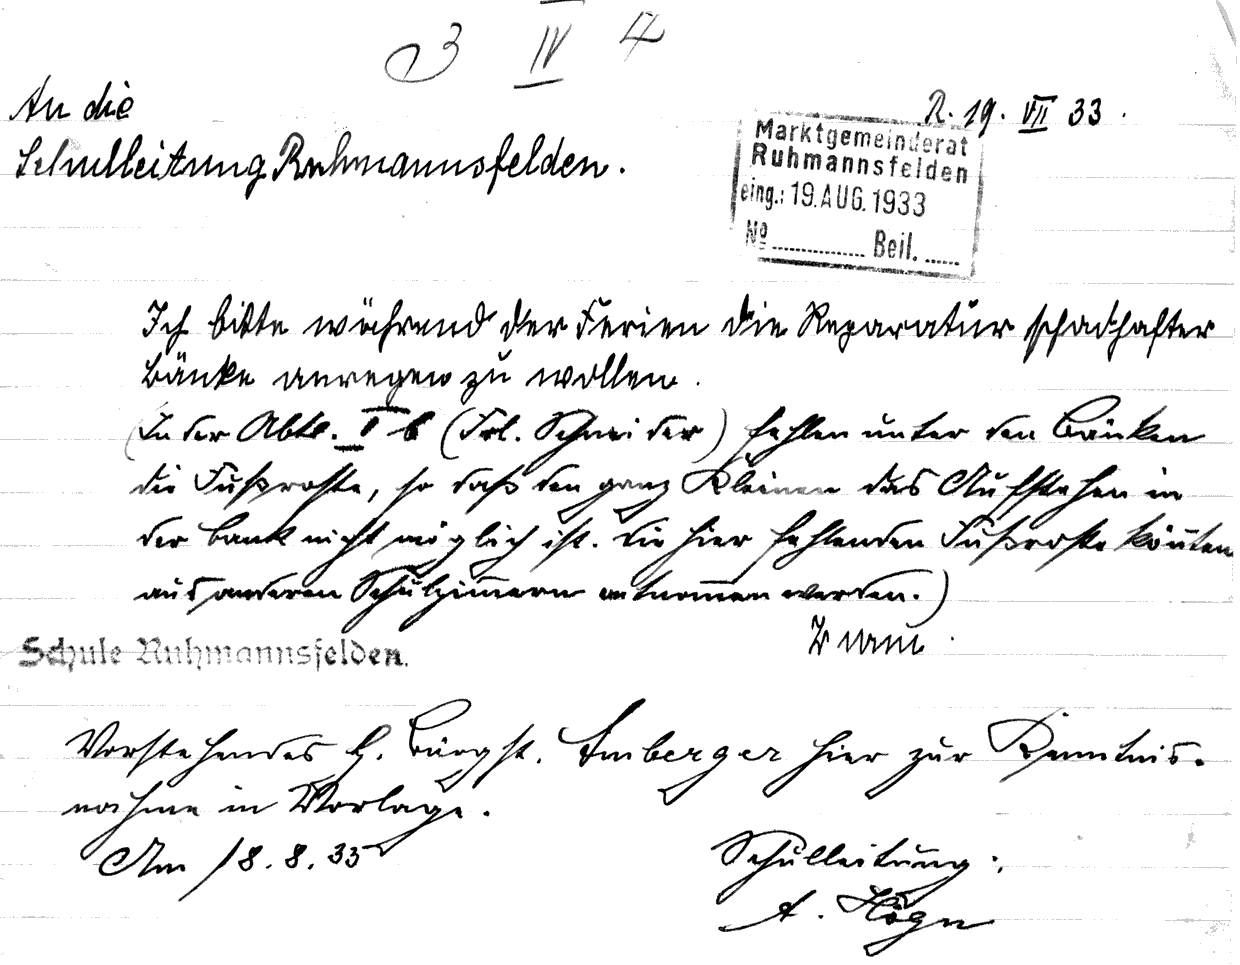 3 IV 4
An die
R. 19. VII 33.
Schulleitung Ruhmannsfelden.
Marktgemeinderat
Ruhmannsfelden
eing.: 19. AUG. 1933
No ............... Beil. ......
Ich bitte während der Ferien die Reparatur schadhafter
Bänke anregen zu wollen.
(In der Abtlg. I b (Frl. Schneider) fehlen unter den Bänken
die Fußroste, so daß den ganz Kleinen das Aufstehen in
der Bank nicht möglich ist. Die hier fehlenden Fußroste könnten
aus anderen Schulzimmern entnommen werden.)
Schule Ruhmannsfelden.
Vorstehendes H. Bürgst. Amberger hier zur Kenntnis-
nahme in Vorlage.
Am 18.8.33
Schulleitung:
A. Högn